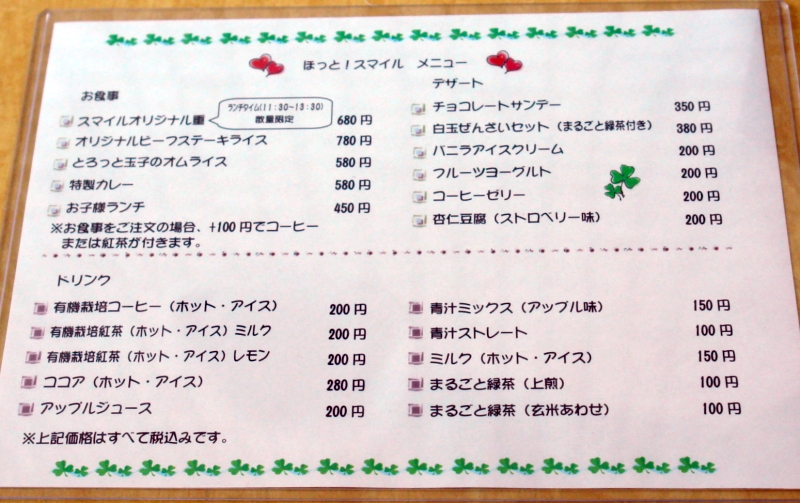 ほっと!スマイル メニュー
お食事
ランチタイム(11:30~13:30)
数量限定
スマイルオリジナル重 680円
オリジナルビーフステーキライス 780円
とろっと玉子のオムライス 580円
特製カレー 580円
お子様ランチ 450円
※お食事をご注文の場合、+100円でコーヒー
または紅茶が付きます。
デザート
チョコレートサンデー 350円
白玉ぜんざいセット(まるごと緑茶付き) 380円
バニラアイスクリーム 200円
フルーツヨーグルト 200円
コーヒーゼリー 200円
杏仁豆腐(ストロベリー味) 200円
ドリンク
有機栽培コーヒー(ホット・アイス) 200円
有機栽培紅茶(ホット・アイス)ミルク 200円
有機栽培紅茶(ホット・アイス)レモン 200円
ココア(ホット・アイス) 280円
アップルジュース 200円
青汁ミックス(アップル味) 150円
青汁ストレート 100円
ミルク(ホット・アイス) 150円
まるごと緑茶(上煎) 100円
まるごと緑茶(玄米あわせ) 100円
※上記価格はすべて税込みです。